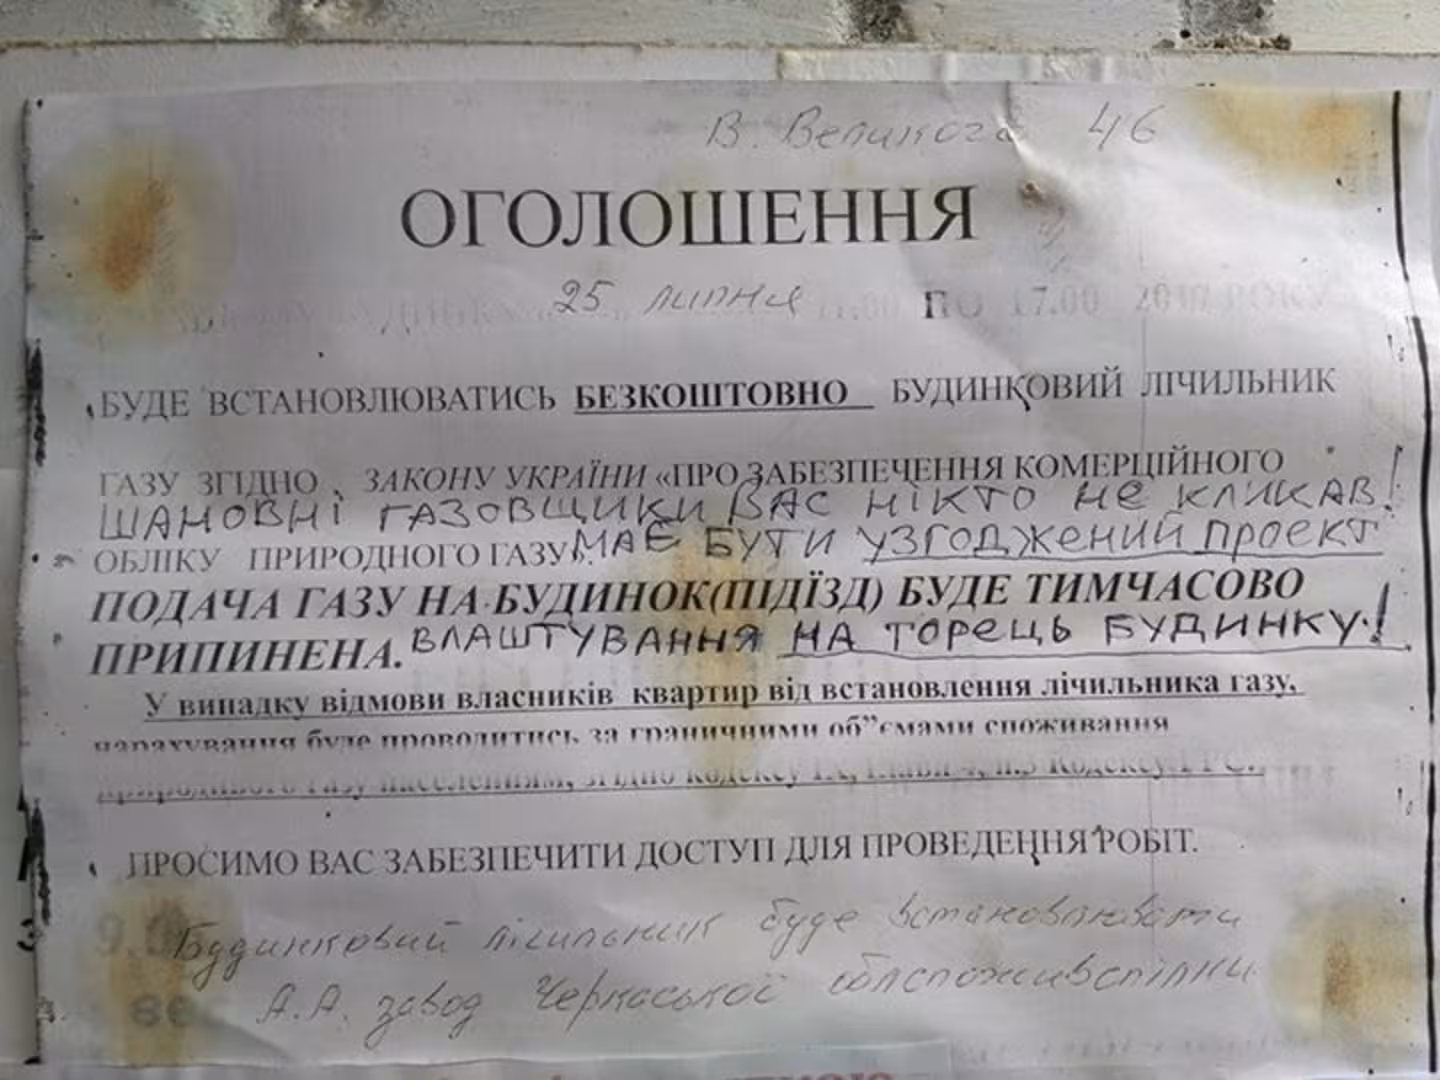 В. Великого 46
ОГОЛОШЕННЯ
25 липня 11.00 ПО 17.00 РОКУ
БУДЕ ВСТАНОВЛЮВАТИСЬ БЕЗКОШТОВНО БУДИНКОВИЙ ЛІЧИЛЬНИК
ГАЗУ ЗГІДНО ЗАКОНУ УКРАЇНИ «ПРО ЗАБЕЗПЕЧЕННЯ КОМЕРЦІЙНОГО
ШАНОВНІ ГАЗОВЩИКИ ВАС НІКТО НЕ КЛИКАВ!
ОБЛІКУ ПРИРОДНОГО ГАЗУ». МАЄ БУТИ УЗГОДЖЕНИЙ ПРОЕКТ
ПОДАЧА ГАЗУ НА БУДИНОК(ПІДЇЗД) БУДЕ ТИМЧАСОВО
ПРИПИНЕНА. ВЛАШТУВАННЯ НА ТОРЕЦЬ БУДИНКУ.!
У випадку відмови власників квартир від встановлення лічильника газу,
нарахування буде проводитись за граничними об”ємами споживання
природного газу населенням, згідно Кодексу ІХ, глави 4, п.3 Кодексу ГРС.
ПРОСИМО ВАС ЗАБЕЗПЕЧИТИ ДОСТУП ДЛЯ ПРОВЕДЕННЯ РОБІТ.
Будинковий лічильник буде встановлювати
А.А. завод Черкаської облспоживспілки